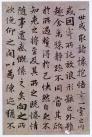 一世或取諸懷抱悟言一室之內
或因寄所託放浪形骸之外雖
趣舍萬殊靜躁不同當其欣
於所遇暫得於己快然自足不
知老之將至及其所之既惓情
隨事遷感慨係之矣向之所
欣俛仰之間以為陳迹猶